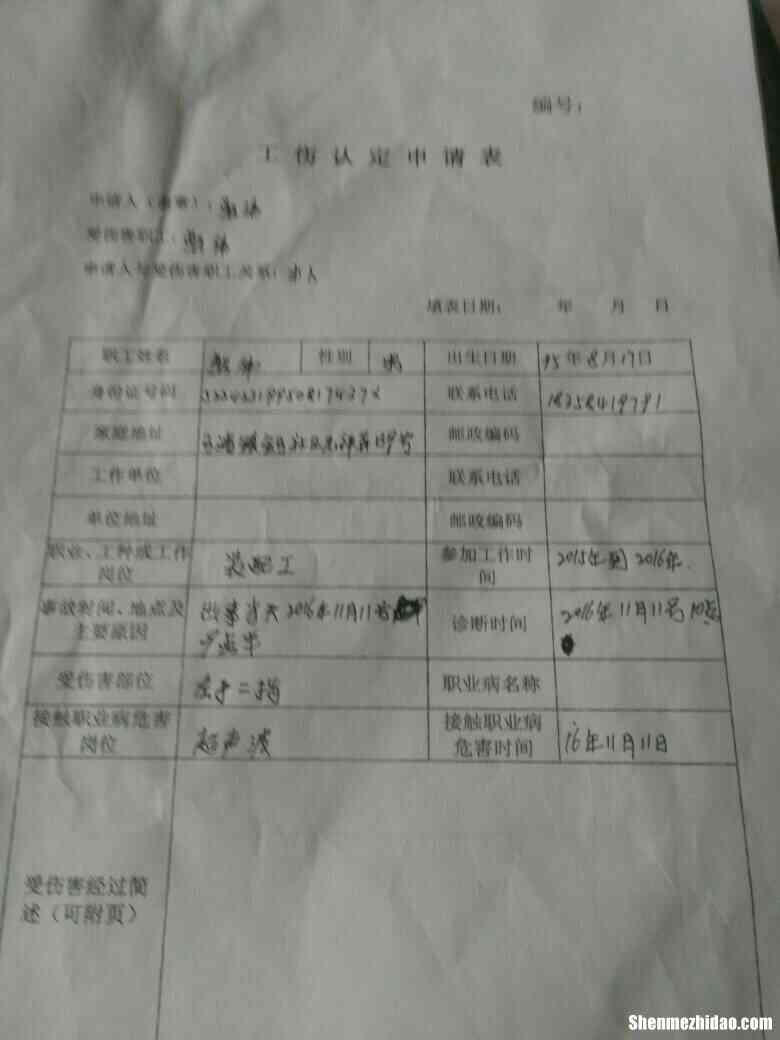 编号：
工伤认定申请表
申请人（盖章）：
受伤害职工：
申请人与受伤害职工关系：本人
填表日期： 年 月 日
职工姓名 性别 男 出生日期 95年8月17日
身份证号码 联系电话 18258419791
家庭地址 邮政编码
工作单位 联系电话
单位地址 邮政编码
职业、工种或工作岗位 装配工 参加工作时间 2015年到2016年.
事故时间、地点及主要原因 2016年11月11号 9点半 诊断时间 2016年11月11号10点
受伤害部位 左手二指 职业病名称
接触职业病危害岗位 超声波 接触职业病危害时间 16年11月11日
受伤害经过简述（可附页）
Shenmezhidao.com